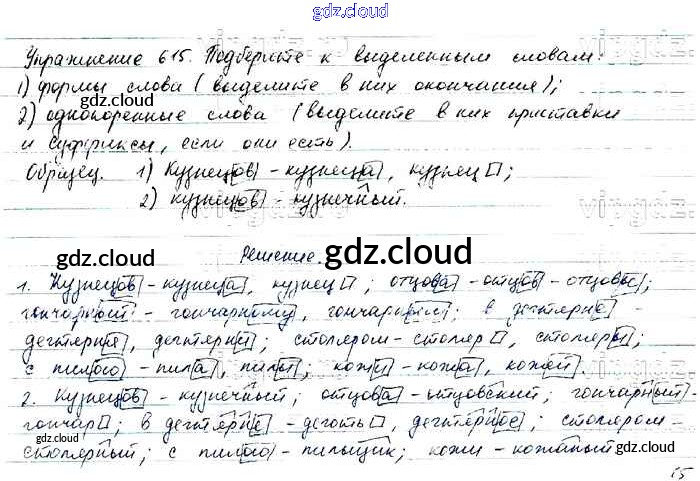 gdz.cloud
Упражнение 615. Подберите к выделенным словам:
1) формы слова (выделите в них окончания);
gdz.cloud gdz.cloud
2) однокоренные слова (выделите в них приставки
и суффиксы, если они есть).
Образец. 1) Кузнецов - кузнеца, кузнец;
2) кузнецов - кузнечный.
Решение. gdz.cloud
1. Кузнецов - кузнеца, кузнец; отцова - отцов -
гончарный - гончарному, в дегтярне -
дегтярня, дегтярни; столяром - столяр, столяры;
с пилою - пила, пилы; кожи - кожа, кожей.
2. Кузнецов - кузнечный; отцова - отцовский; гончарный -
гончар; в дегтярне - деготь, столяром -
столярный; с пилою - пильщик; кожи - кожаный
gdz.cloud gdz.cloud
15